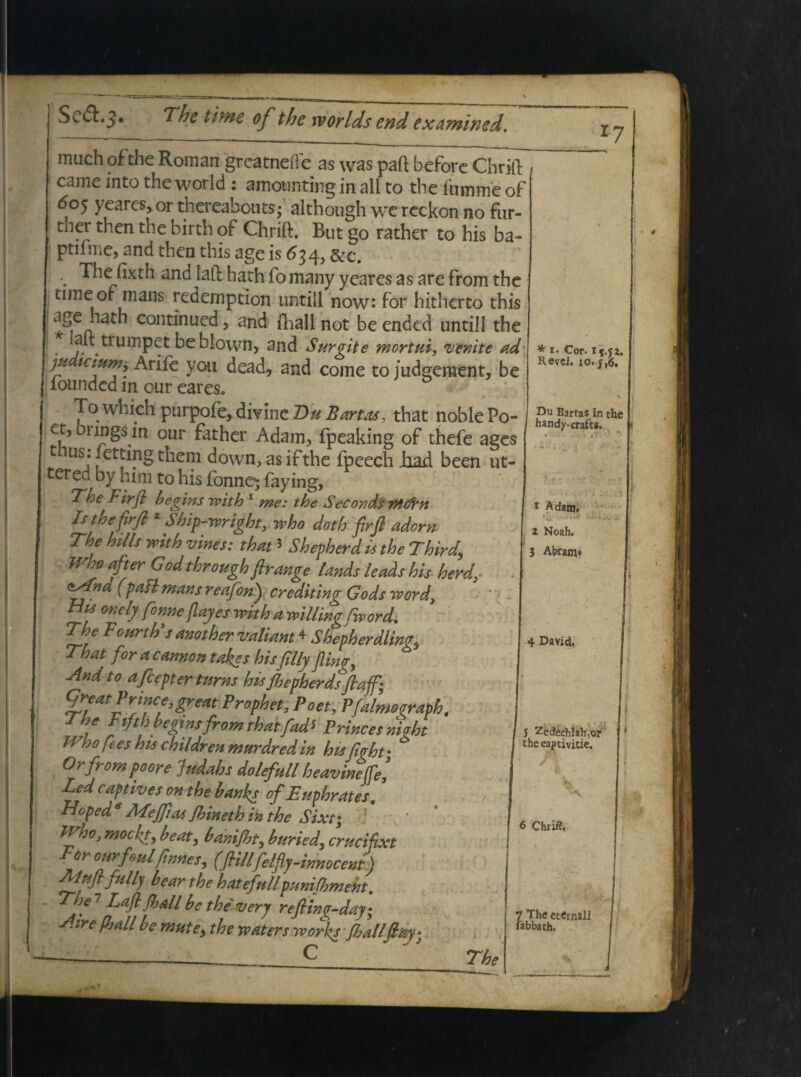 Sect.3. The time of the worlds end examined. 17
much of the Roman greatnesse as was past before Christ
came into the world : amounting in all to the summe of
605 yeares, or thereabouts; although we reckon no fur-
ther then the birth of Christ. But go rather to his ba-
ptisme, and then this age is 634, &c.
The sixth and last hath so many yeares as are from the
time of mans redemption untill now: for hitherto this
age hath continued, and shall not be ended untill the
* last trumpet be blown, and Surgite mortui, venite ad
judicium, Arise you dead, and come to judgement, be
sounded in our eares.
* 1. Cor. 15.52.
Revel. 10.5,6.
To which purpose, divine Du Bartas, that noble Po-
et, brings in our father Adam, speaking of these ages
thus: setting them down, as if the speech had been ut-
tered by him to his sonne; saying,
Du Bartas in the
handy-crafts.
The First begins with 1 me: the Seconds morn
Is the first 2 Ship-wright, who doth first adorn
The hills with vines: that 3 Shepherd is the Third,
Who after God through strange lands leads his herd,
And (past mans reason) crediting Gods word,
His onely sonne slayes with a willing sword.
The Fourth's another valiant 4 Shepherdling,
That for a cannon takes his silly sling,
And to a scepter turns his shepherds staff;
Great Prince, great Prophet, Poet, Psalmograph.
The Fifth begins from that sad 5 Princes night
Who sees his children murdred in his sight;
Or from poore Judahs dolefull heavinesse,
Led captives on the banks of Euphrates.
Hoped 6 Messias shineth in the Sixt;
Who, mockt, beat, banisht, buried, crucifixt
For our foul sinnes, (still selfly-innocent)
Must fully bear the hatefull punishment.
The 7 Last shall be the very resting-day;
Aire shall be mute, the waters works shall stay;
1 Adam.
2 Noah.
3 Abram.
4 David.
5 Zedechiah, or
the captivitie.
6 Christ.
7 The eternall
sabbath.
C The